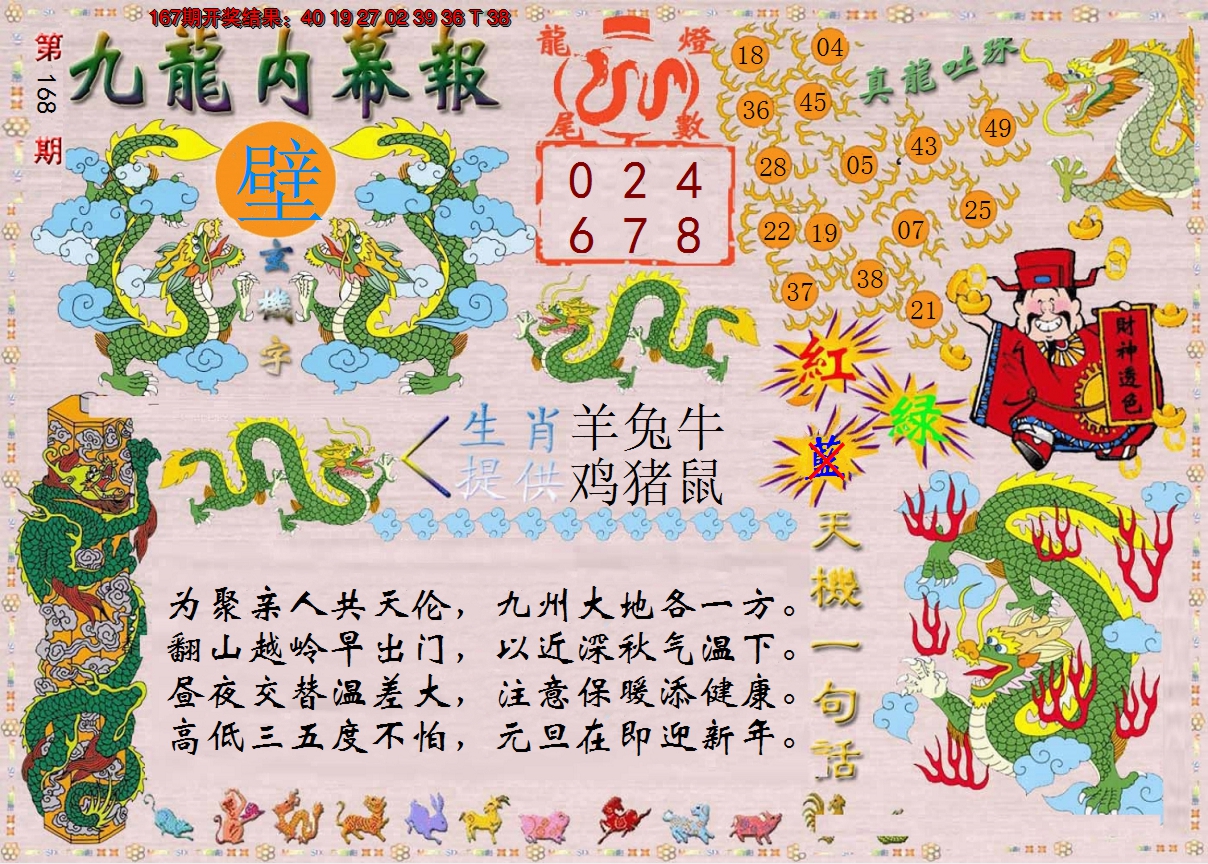 167期开奖结果：40 19 27 02 39 36 T 38
第168期
九龍内幕報
壁
玄機字
龍燈
尾數
0 2 4
6 7 8
真龍吐珠
18 04
36 45
43 49
28 05
25
22 19 07
38
37
21
財神透色
紅
綠
藍
生肖 羊兔牛
提供 鸡猪鼠
天機一句話
为聚亲人共天伦，九州大地各一方。
翻山越岭早出门，以近深秋气温下。
昼夜交替温差大，注意保暖添健康。
高低三五度不怕，元旦在即迎新年。